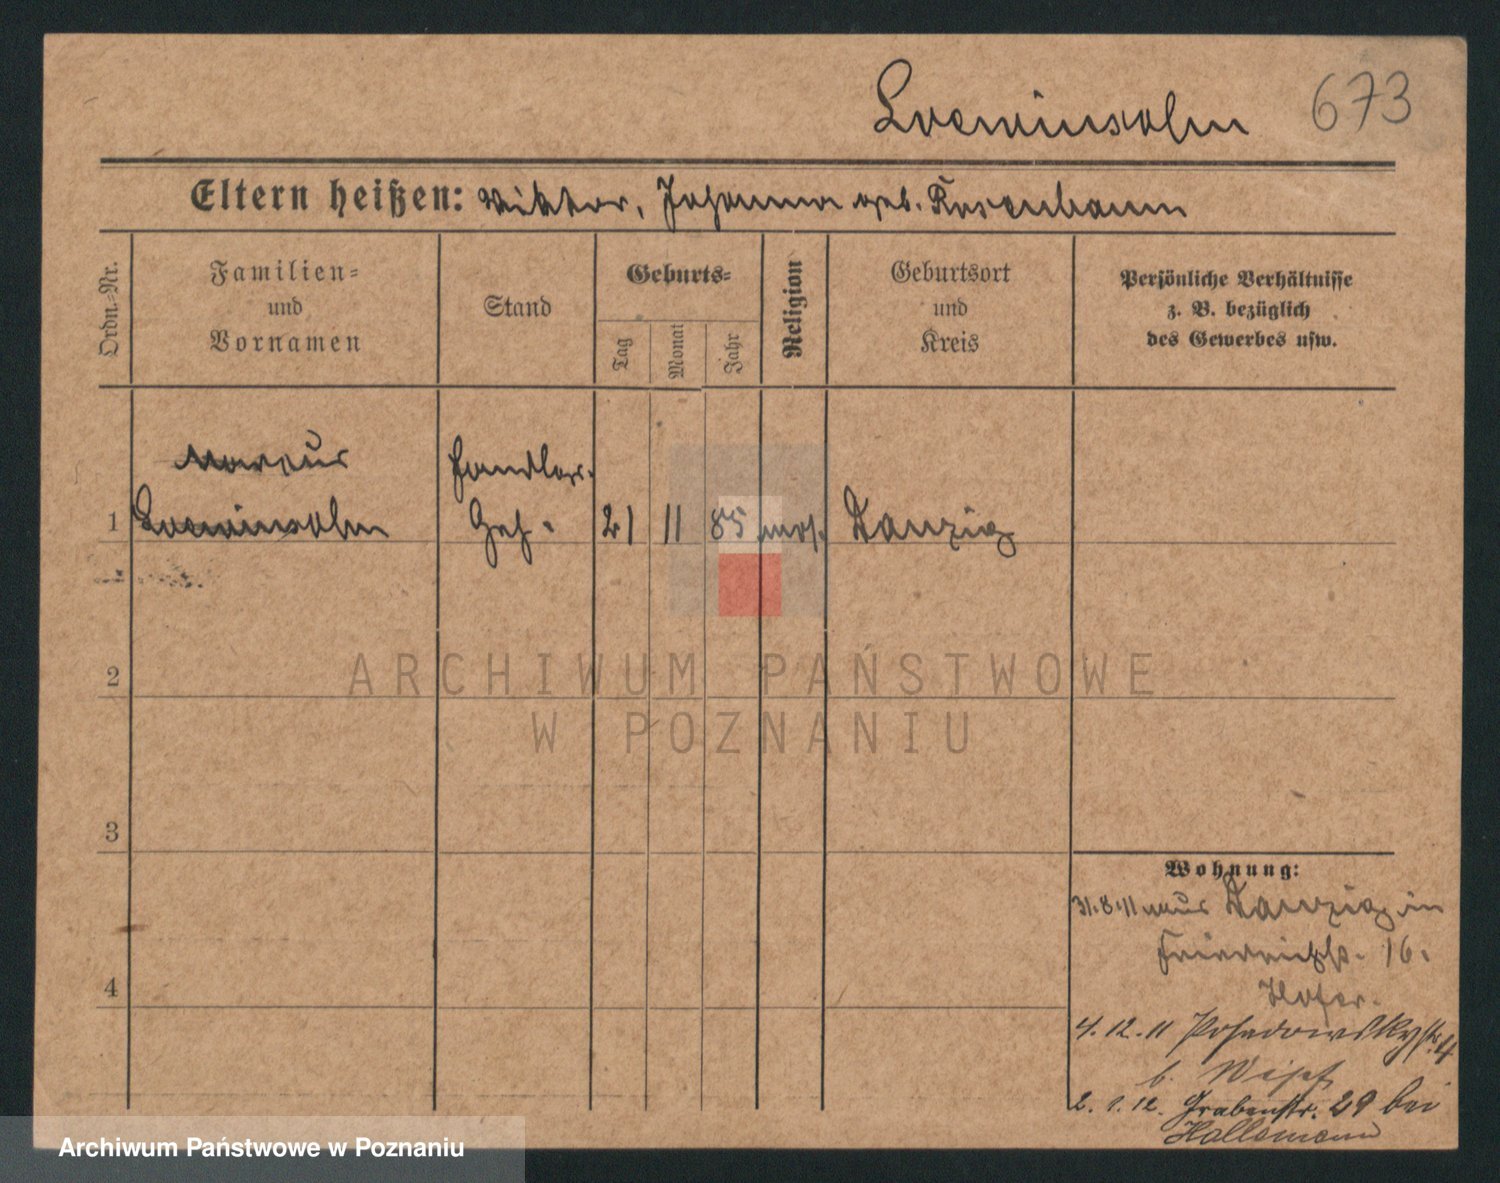 Loewinsohn 673
Eltern heißen: Viktor, Johanna geb. Rosenbaum
Ordn.-Nr.
Familien-
und
Vornamen
Stand
Geburts-
Tag
Monat
Jahr
Religion
Geburtsort
und
Kreis
Persönliche Verhältnisse
z. B. bezüglich
des Gewerbes usw.
Marcus Handlgs.
1 Loewinsohn Geh. 21 11 85 mos. Danzig
2
ARCHIWUM PAŃSTWOWE
W POZNANIU
3
Wohnung:
31.8.11 aus Danzig in
Friedrichstr. 16.
4
4.12.11 Posadowskystr. 4
b.
2.1.12. Grabenstr. 29 bei
Archiwum Państwowe w Poznaniu